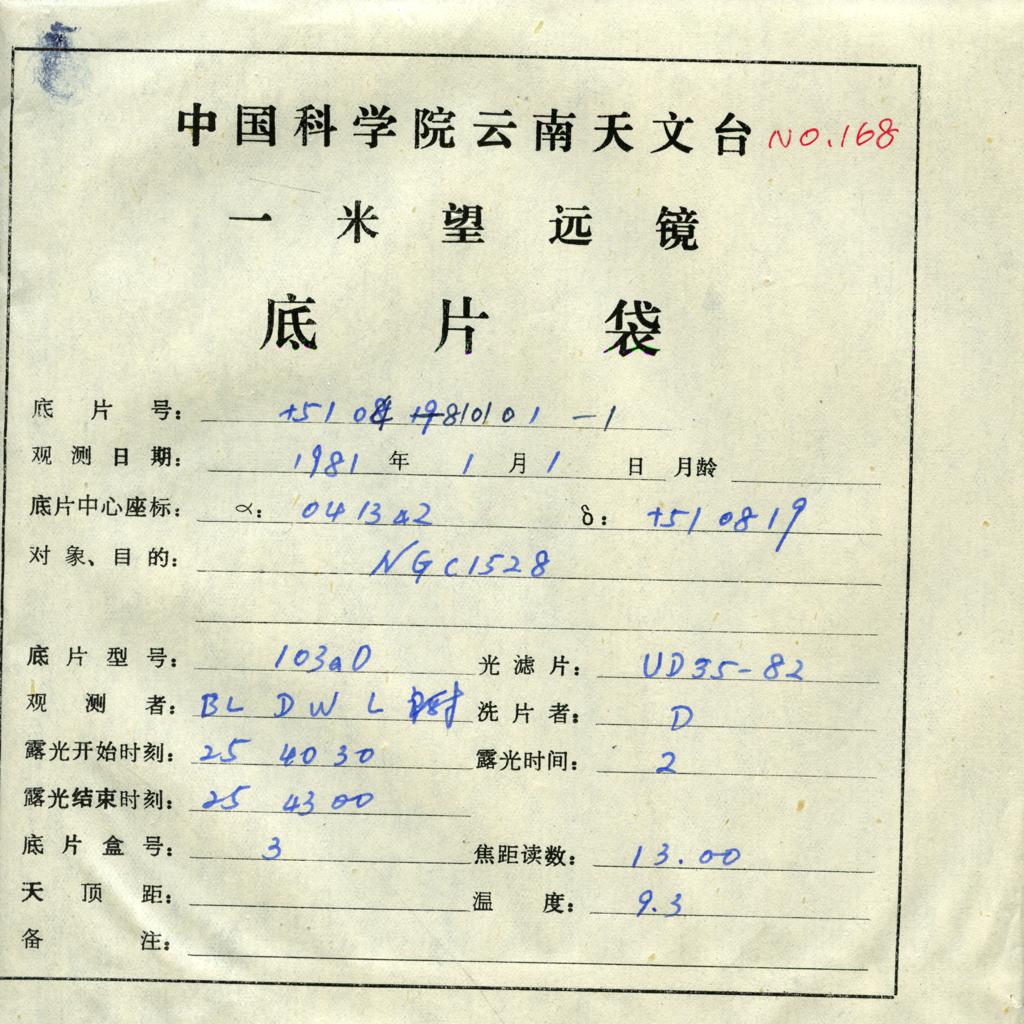 中国科学院云南天文台 NO.168
一米望远镜
底片袋
底片号： +5108 19810101 -1
观测日期： 1981 年 1 月 1 日 月龄
底片中心座标： α： 041342 δ： +510819
对象、目的： NGC1528
底片型号： 103aD 光滤片： UD35-82
观测者： BL D W L 洗片者： D
露光开始时刻： 25 40 30 露光时间： 2
露光结束时刻： 25 43 00
底片盒号： 3 焦距读数： 13.00
天顶距： 温度： 9.3
备注：